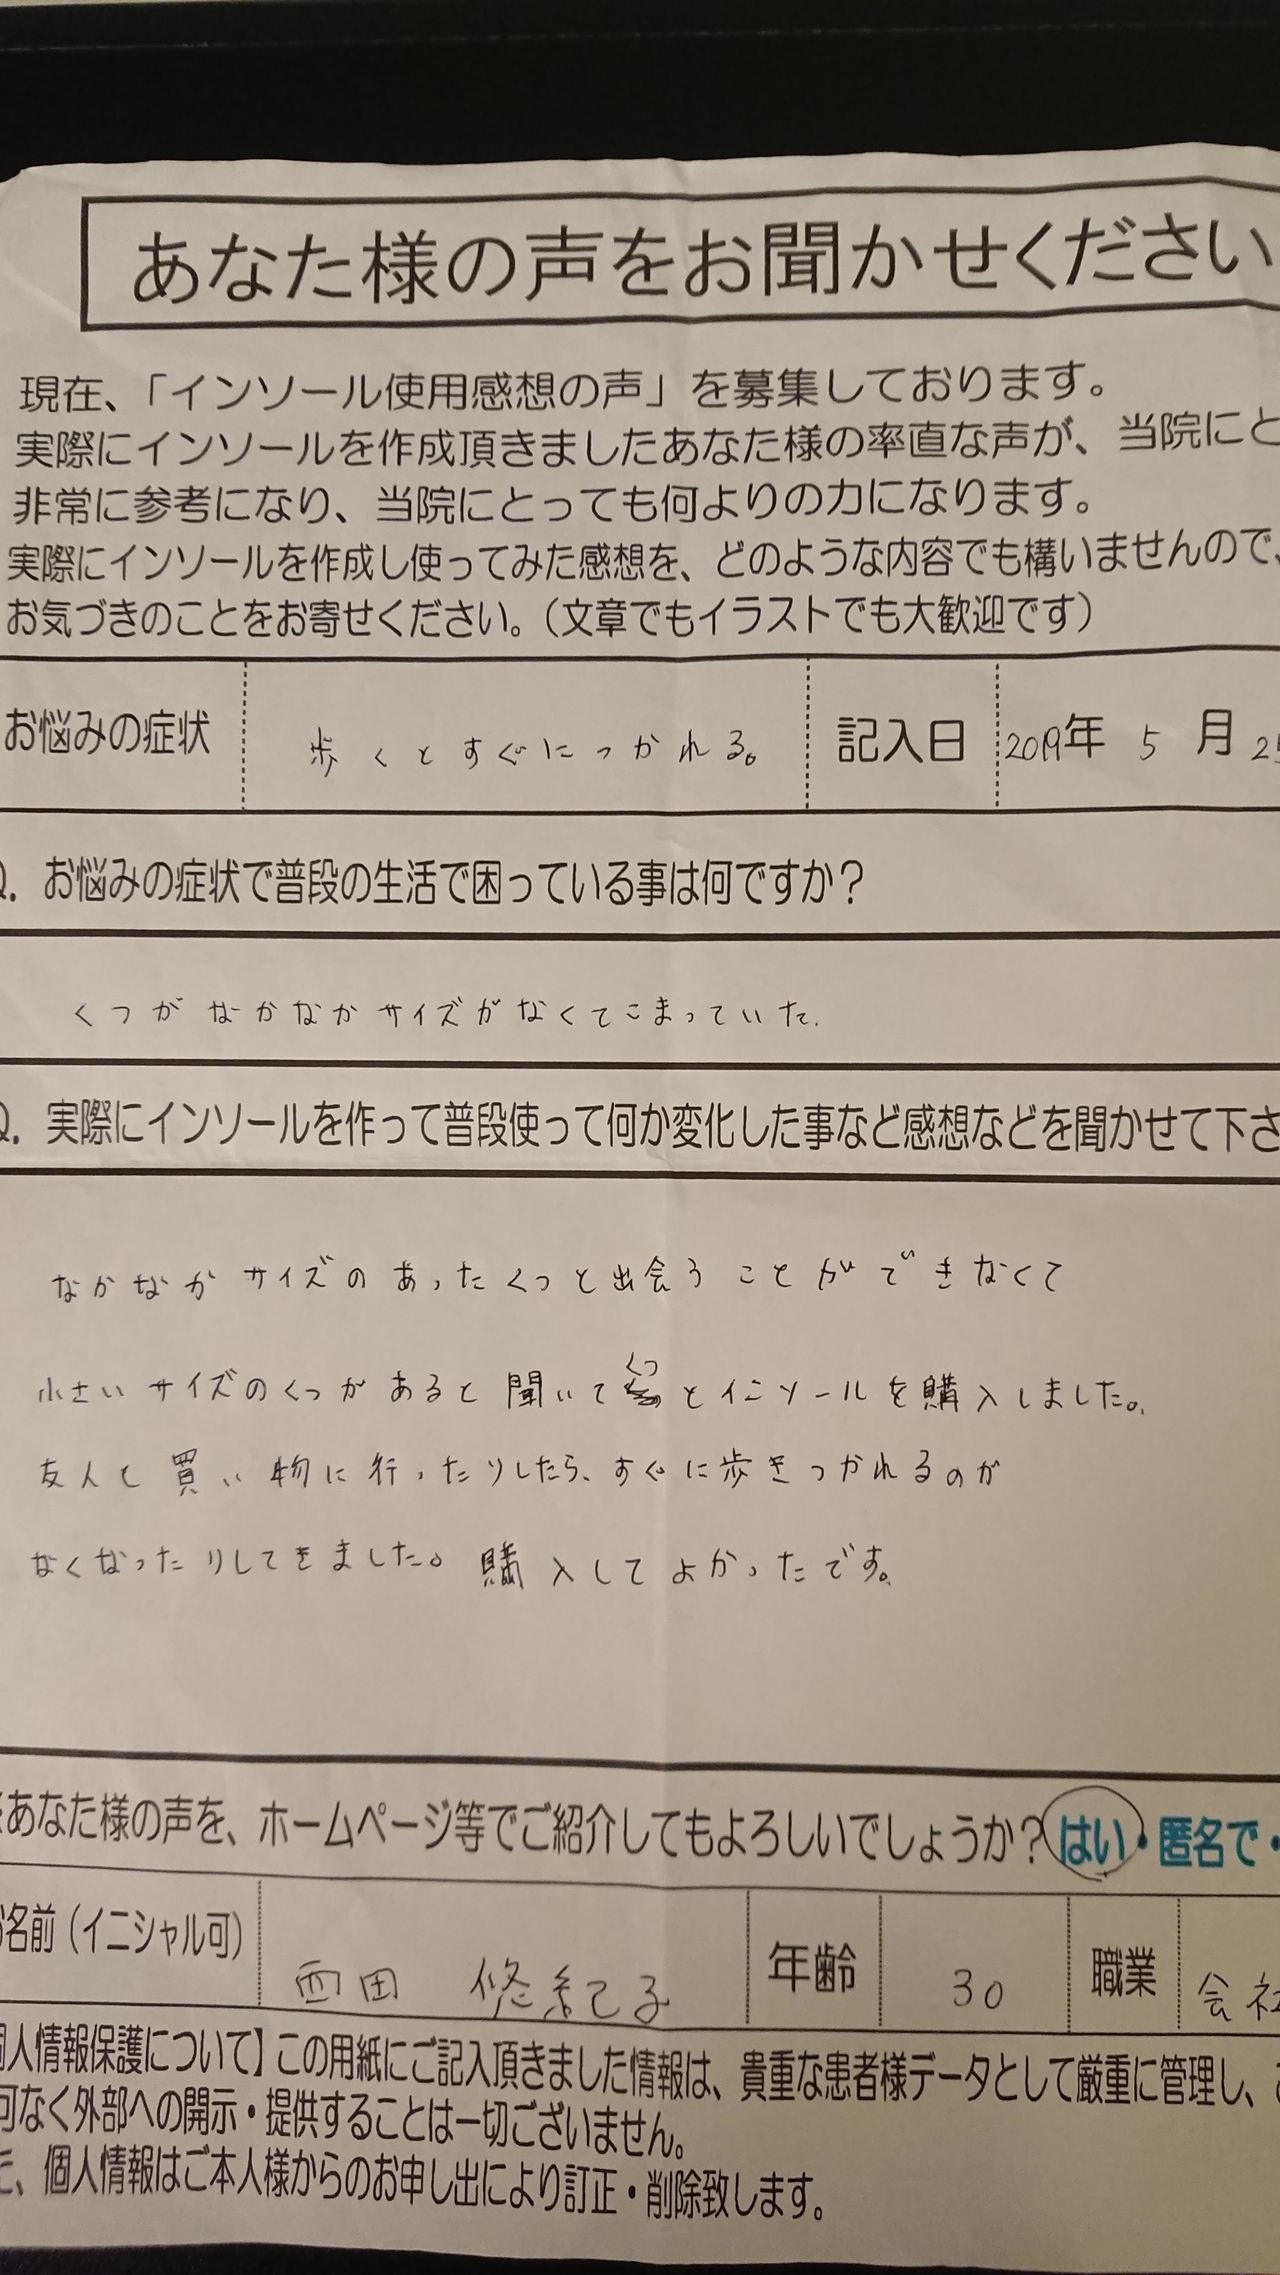 あなた様の声をお聞かせください
現在、「インソール使用感想の声」を募集しております。
実際にインソールを作成頂きましたあなた様の率直な声が、当院にと
非常に参考になり、当院にとっても何よりの力になります。
実際にインソールを作成し使ってみた感想を、どのような内容でも構いませんので、
お気づきのことをお寄せください。(文章でもイラストでも大歓迎です)
お悩みの症状 歩くとすぐにつかれる。 記入日 2019年 5 月 25
Q. お悩みの症状で普段の生活で困っている事は何ですか?
くつがなかなかサイズがなくてこまっていた.
Q. 実際にインソールを作って普段使って何か変化した事など感想などを聞かせて下さ
なかなかサイズのあったくつと出会うことができなくて
小さいサイズのくつがあると聞いてくつとインソールを購入しました。
友人と買い物に行ったりしたら、すぐに歩きつかれるのが
なくなったりしてきました。購入してよかったです。
※あなた様の声を、ホームページ等でご紹介してもよろしいでしょうか?はい・匿名で・
お名前(イニシャル可) 西田 悠紀子 年齢 30 職業 会社
個人情報保護について】この用紙にご記入頂きました情報は、貴重な患者様データとして厳重に管理し、
可なく外部への開示・提供することは一切ございません。
た、個人情報はご本人様からのお申し出により訂正・削除致します。